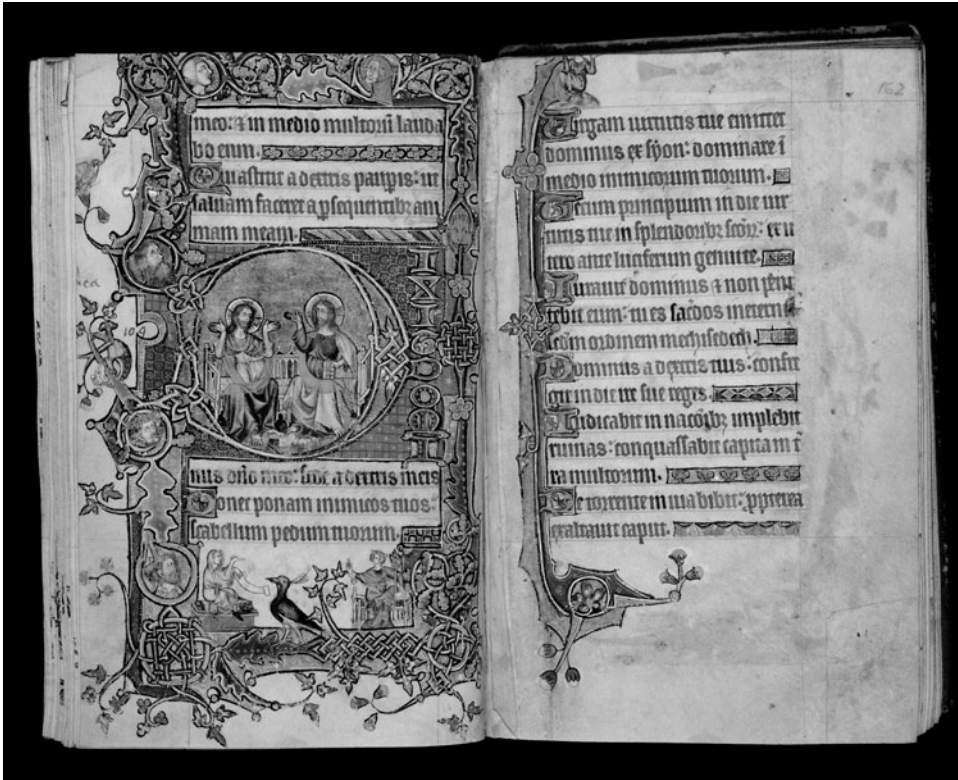 meo: ⁊ in medio multoꝝ lauda
bo eum.
Qui astitit a dextris paup̲is: ut
saluam faceret a p̲sequentibꝫ ani
mam meam.
DIXIT DOMI
nus dn̄o meo: sede a dextris meis
Donec ponam inimicos tuos:
scabellum pedum tuorum.
162
Uirgam uirtutis tue emittet
dominus ex syon: dominare ī
medio inimicorum tuorum.
Tecum principium in die uir
tutis tue in splendoribꝫ scōꝝ: ex u
tero ante luciferum genui te.
Iurauit dominus ⁊ non penī
tebit eum: tu es sac̄dos in etern̄
scd̄m ordinem melchisedech.
Dominus a dextris tuis: confre
git in die ire sue reges.
Iudicabit in nac̄oībꝫ implebit
ruinas: conquassabit capita in t̄
ra multorum.
De torrente in uia bibit: ꝓpterea
exaltauit caput.